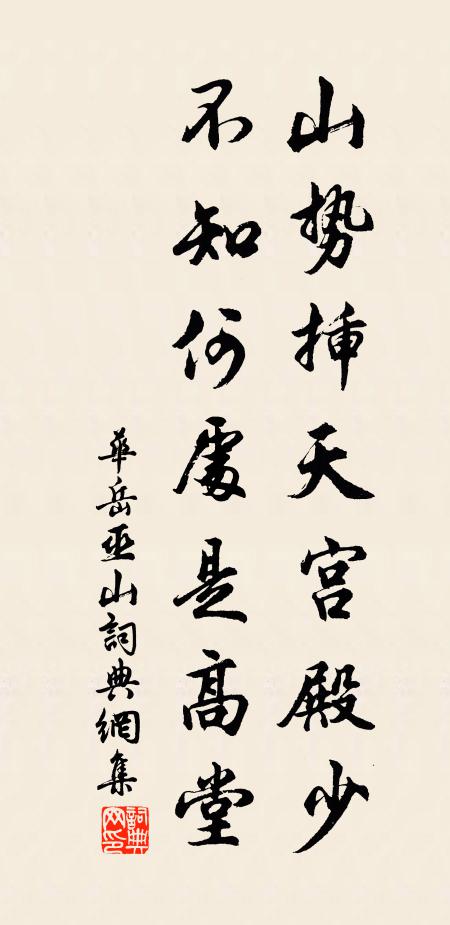 山勢插天宮殿少
不知何處是高堂
華岳巫山詞典網集
詞典網印